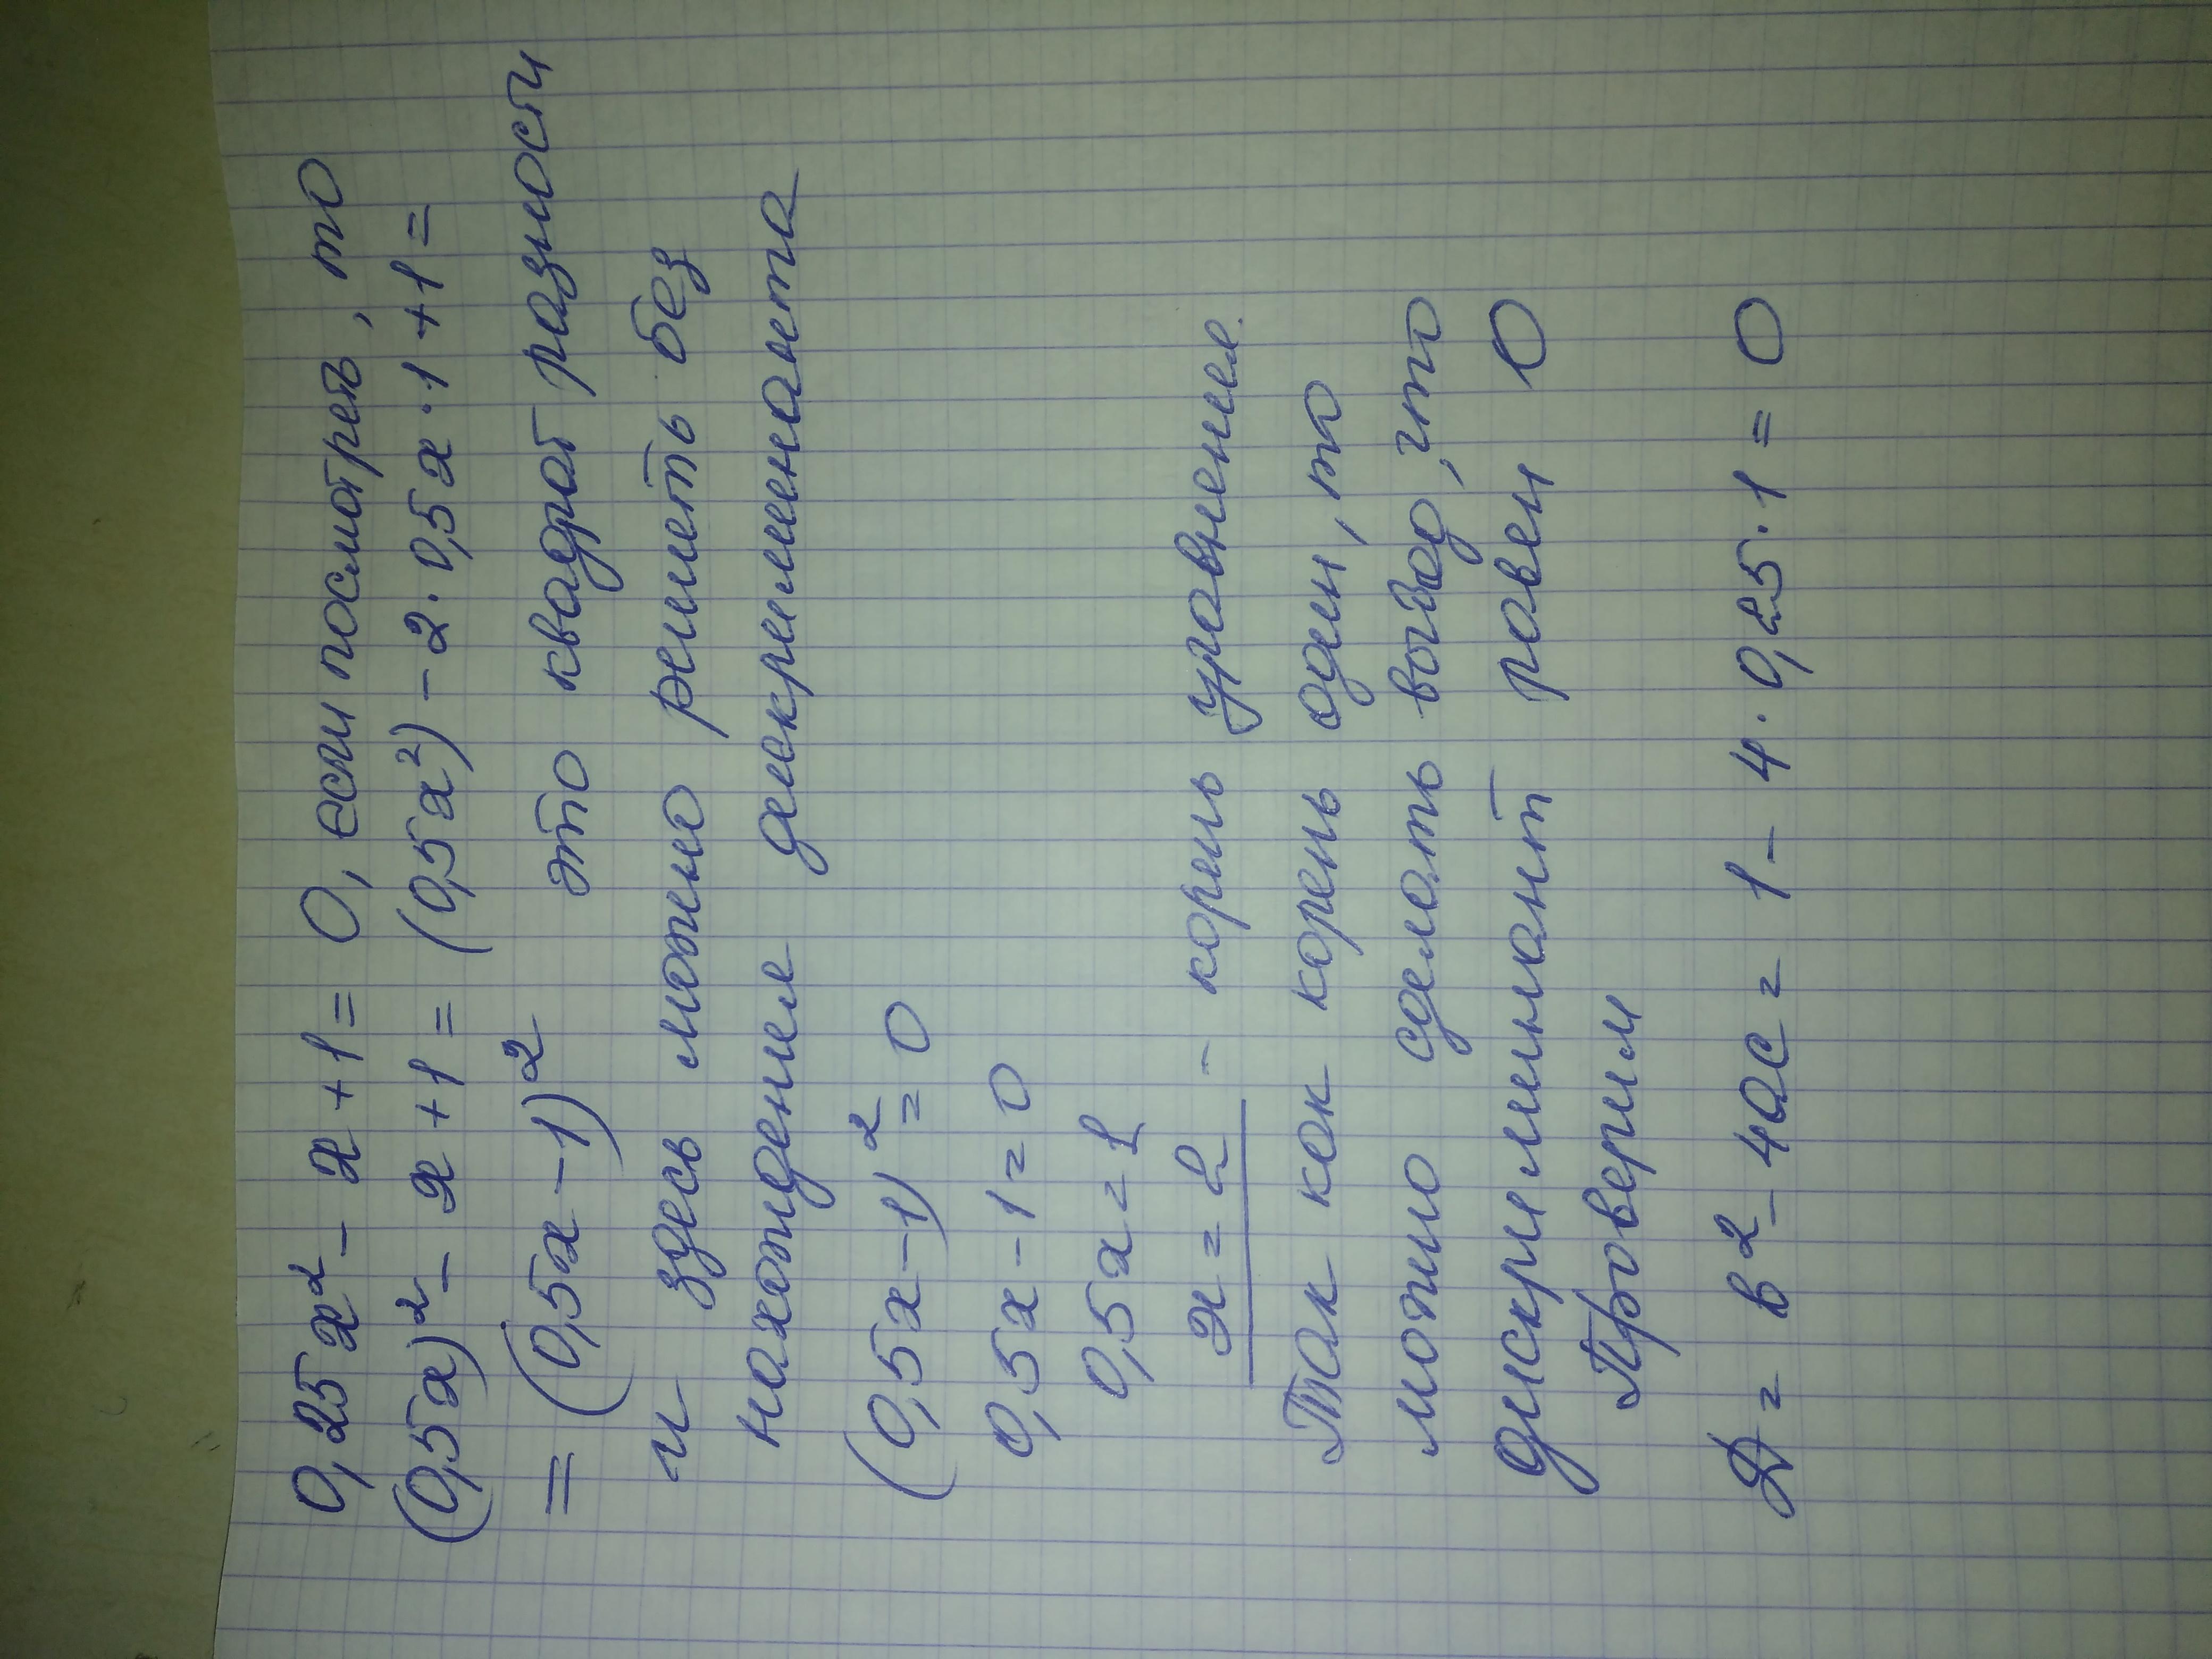 0,25x² - x + 1 = 0, если посмотреть, то
(0,5x)² - x + 1 = (0,5x²) - 2 · 0,5x · 1 + 1 =
= (0,5x - 1)² это квадрат разности
и здесь можно решить без
нахождения дискрименанта
(0,5x - 1)² = 0
0,5x - 1 = 0
0,5x = 1
x = 2 - корень уравнения.
Так как корень один, то
можно сделать вывод, что
дискриминант равен 0
Проверим
D = b² - 4ac = 1 - 4 · 0,25 · 1 = 0